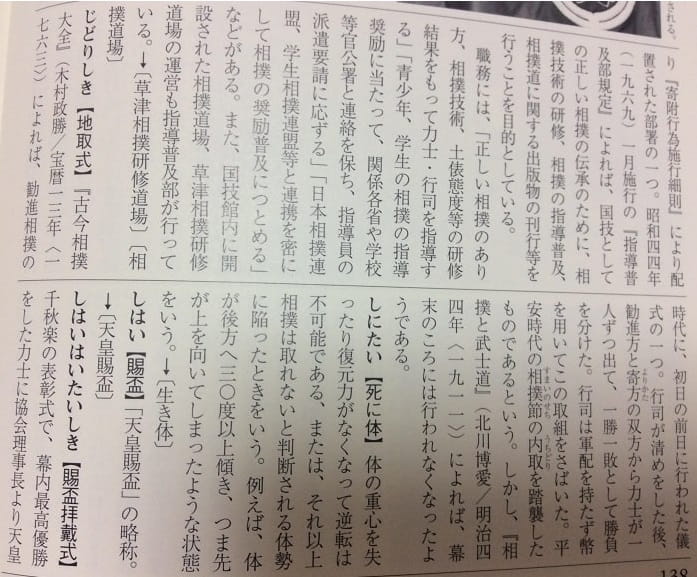 される。
り『寄附行為施行細則』により配
置された部署の一つ。昭和四四年
(一九六九)一月施行の『指導普
及部規定』によれば、国技として
の正しい相撲の伝承のために、相
撲技術の研修、相撲の指導普及、
相撲道に関する出版物の刊行等を
行うことを目的としている。
職務には、「正しい相撲のあり
方、相撲技術、土俵態度等の研修
結果をもって力士・行司を指導す
る」「青少年、学生の相撲の指導
奨励に当たって、関係各省や学校
等官公署と連絡を保ち、指導員の
派遣要請に応ずる」「日本相撲連
盟、学生相撲連盟等と連携を密に
して相撲の奨励普及につとめる」
などがある。また、国技館内に開
設された相撲道場、草津相撲研修
道場の運営も指導普及部が行って
いる。→〔草津相撲研修道場〕〔相
撲道場〕
じどりしき【地取式】『古今相撲
大全』(木村政勝/宝暦一三年〈一
七六三〉)によれば、勧進相撲の
時代に、初日の前日に行われた儀
式の一つ。行司が清めをした後、
勧進方と寄方の双方から力士が一
よりかた
人ずつ出て、一勝一敗として勝負
を分けた。行司は軍配を持たず幣
を用いてこの取組をさばいた。平
安時代の相撲節の内取を踏襲した
すまいのせち うちどり
ものであるという。しかし、『相
撲と武士道』(北川博愛/明治四
四年〈一九一一〉)によれば、幕
末のころには行われなくなったよ
うである。
しにたい【死に体】体の重心を失
ったり復元力がなくなって逆転は
不可能である、または、それ以上
相撲は取れないと判断される体勢
に陥ったときをいう。例えば、体
が後方へ三〇度以上傾き、つま先
が上を向いてしまったような状態
をいう。→〔生き体〕
しはい【賜盃】「天皇賜盃」の略称。
→〔天皇賜盃〕
しはいはいたいしき【賜盃拝戴式】
千秋楽の表彰式で、幕内最高優勝
をした力士に協会理事長より天皇
139